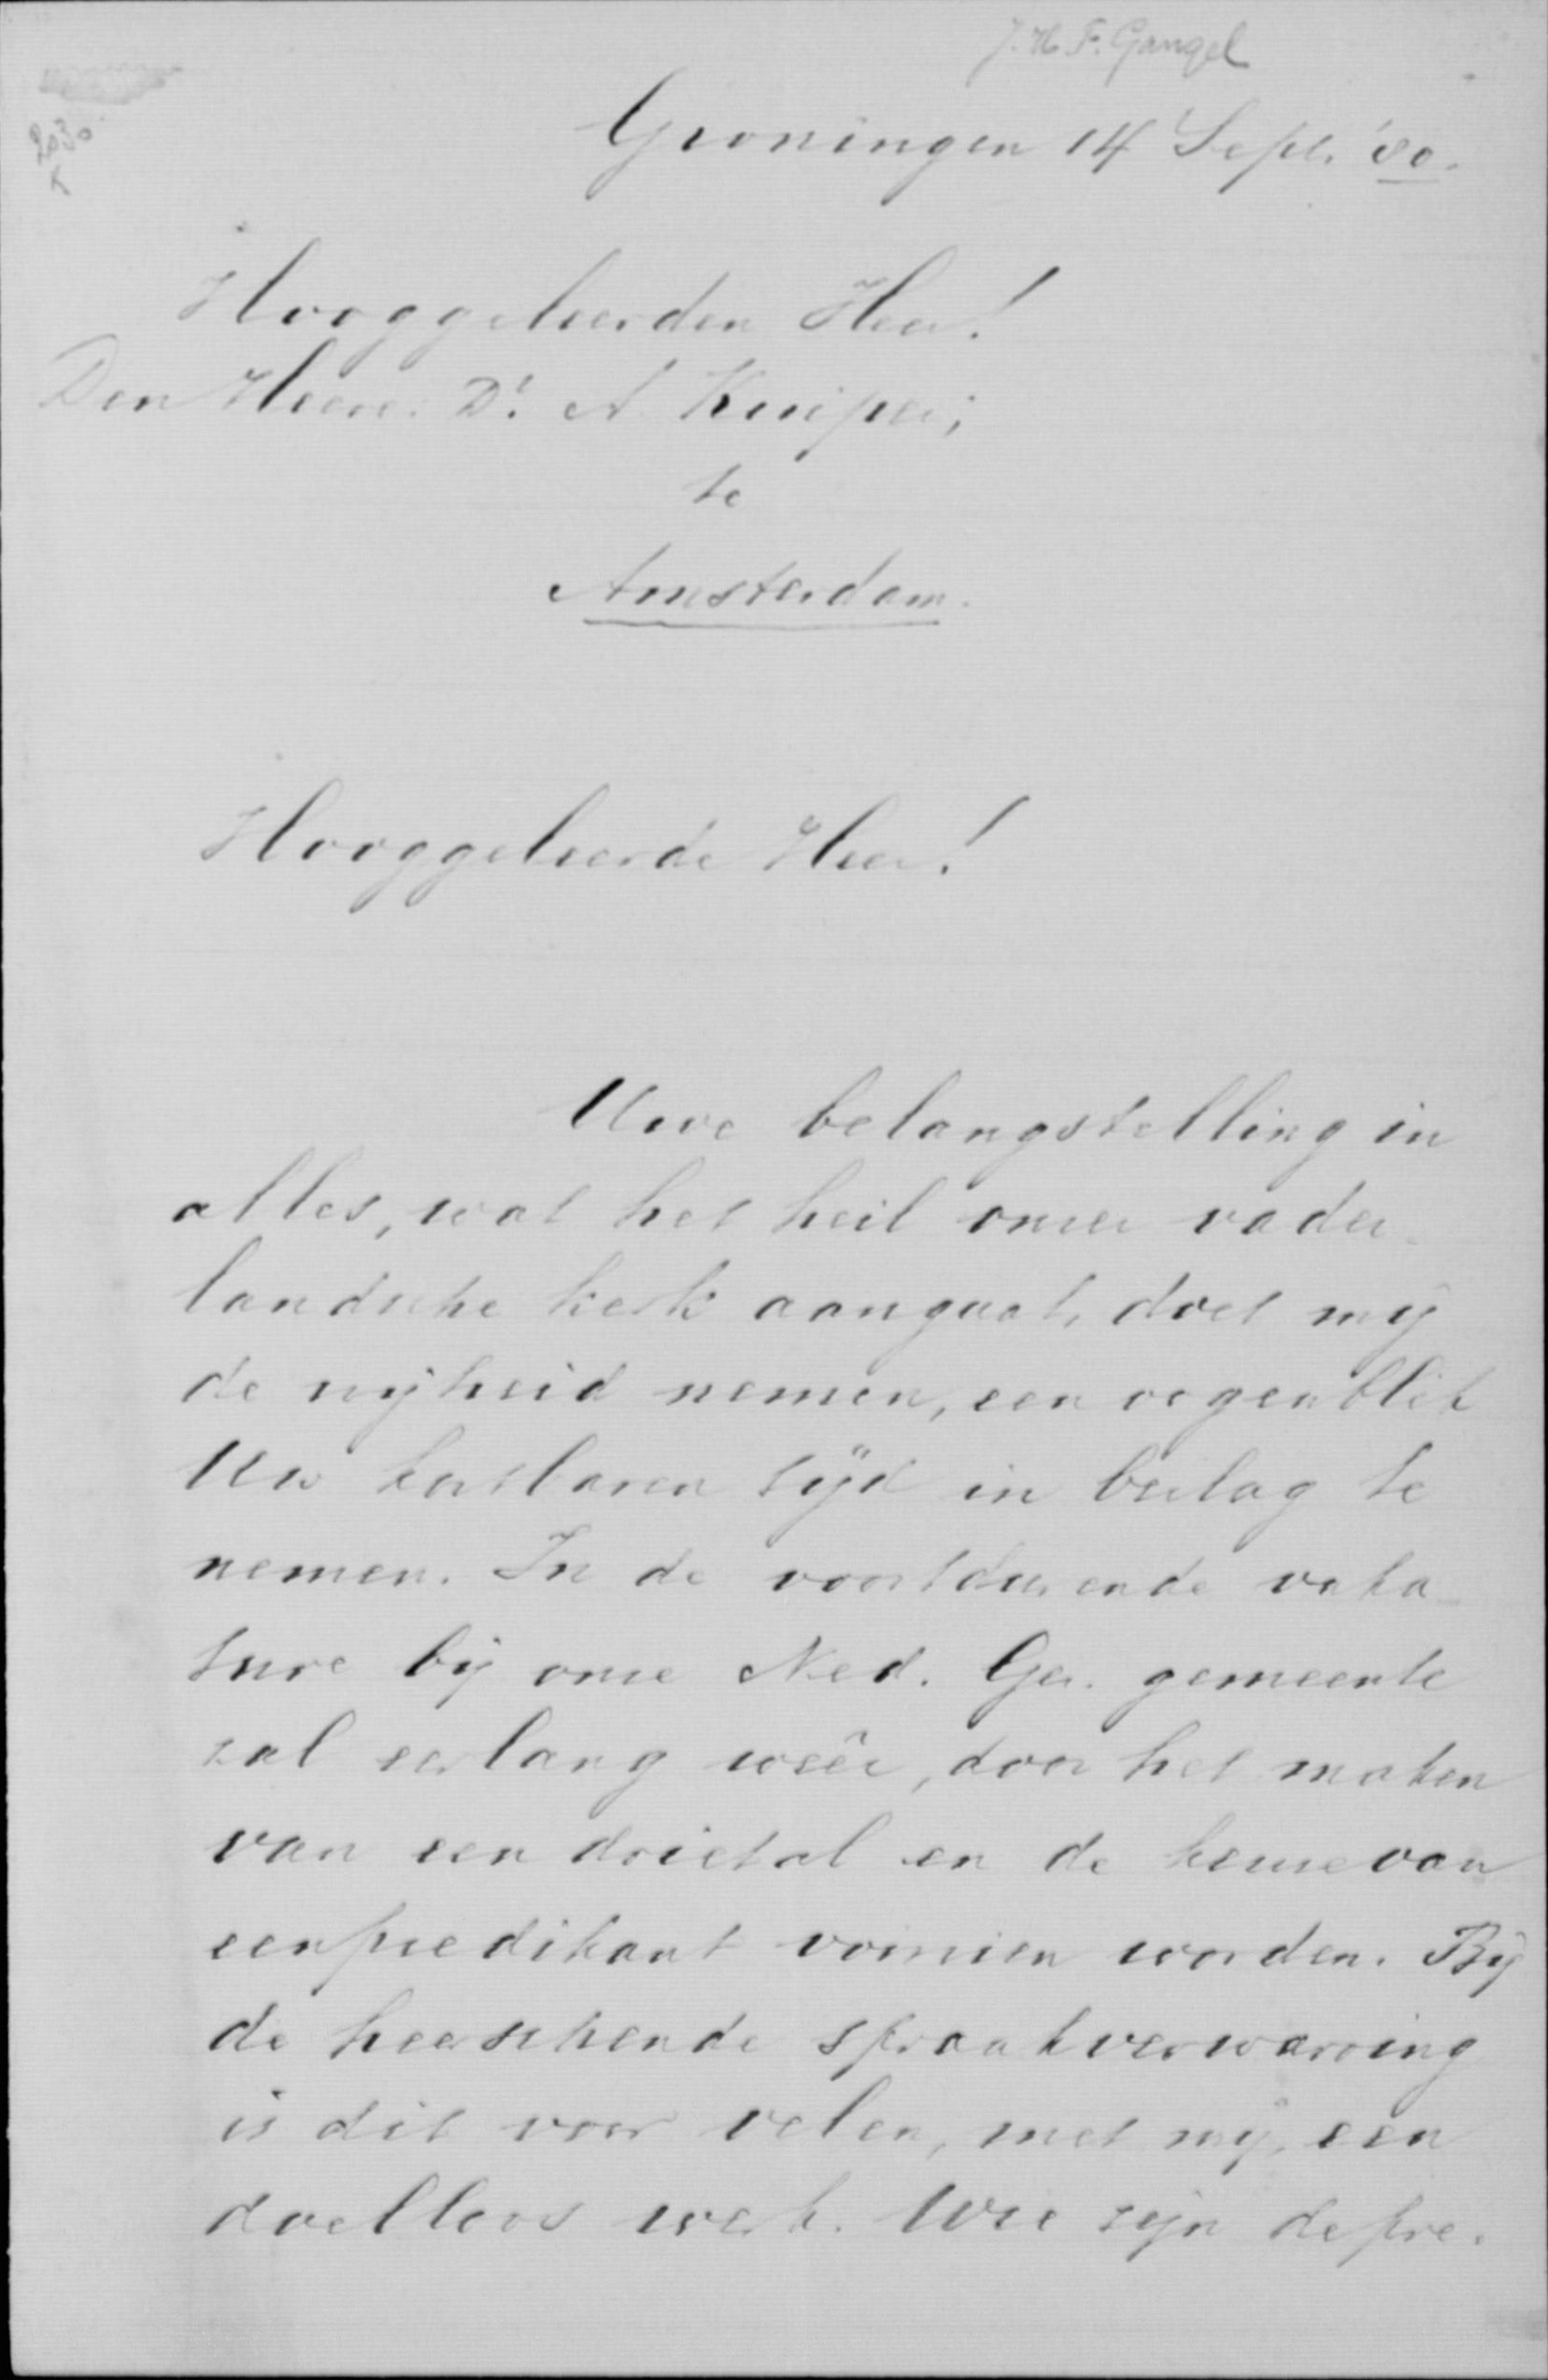 J. H. F. Gangel
2030
Groningen 14 Sept. '80.
Hooggeleerden Heer!
Den Heere Dr. A Kuiper;
te
Amsterdam.
Hooggeleerde Heer!
Uwe belangstelling in
alles, wat het heil onzer vader-
landsche kerk aangaat, doet mij
de vrijheid nemen, een oogenblik
Uw kostbaren tijd in beslag te
nemen. In de voortdurende vaka-
ture bij onze Ned. Ger. gemeente
zal eerlang weêr, door het maken
van een drietal en de keuze van
een predikant voorzien worden. Bij
de heerschende spraakverwarring
is dit voor velen, met mij, een
doelloos werk. Wie zijn de pre-